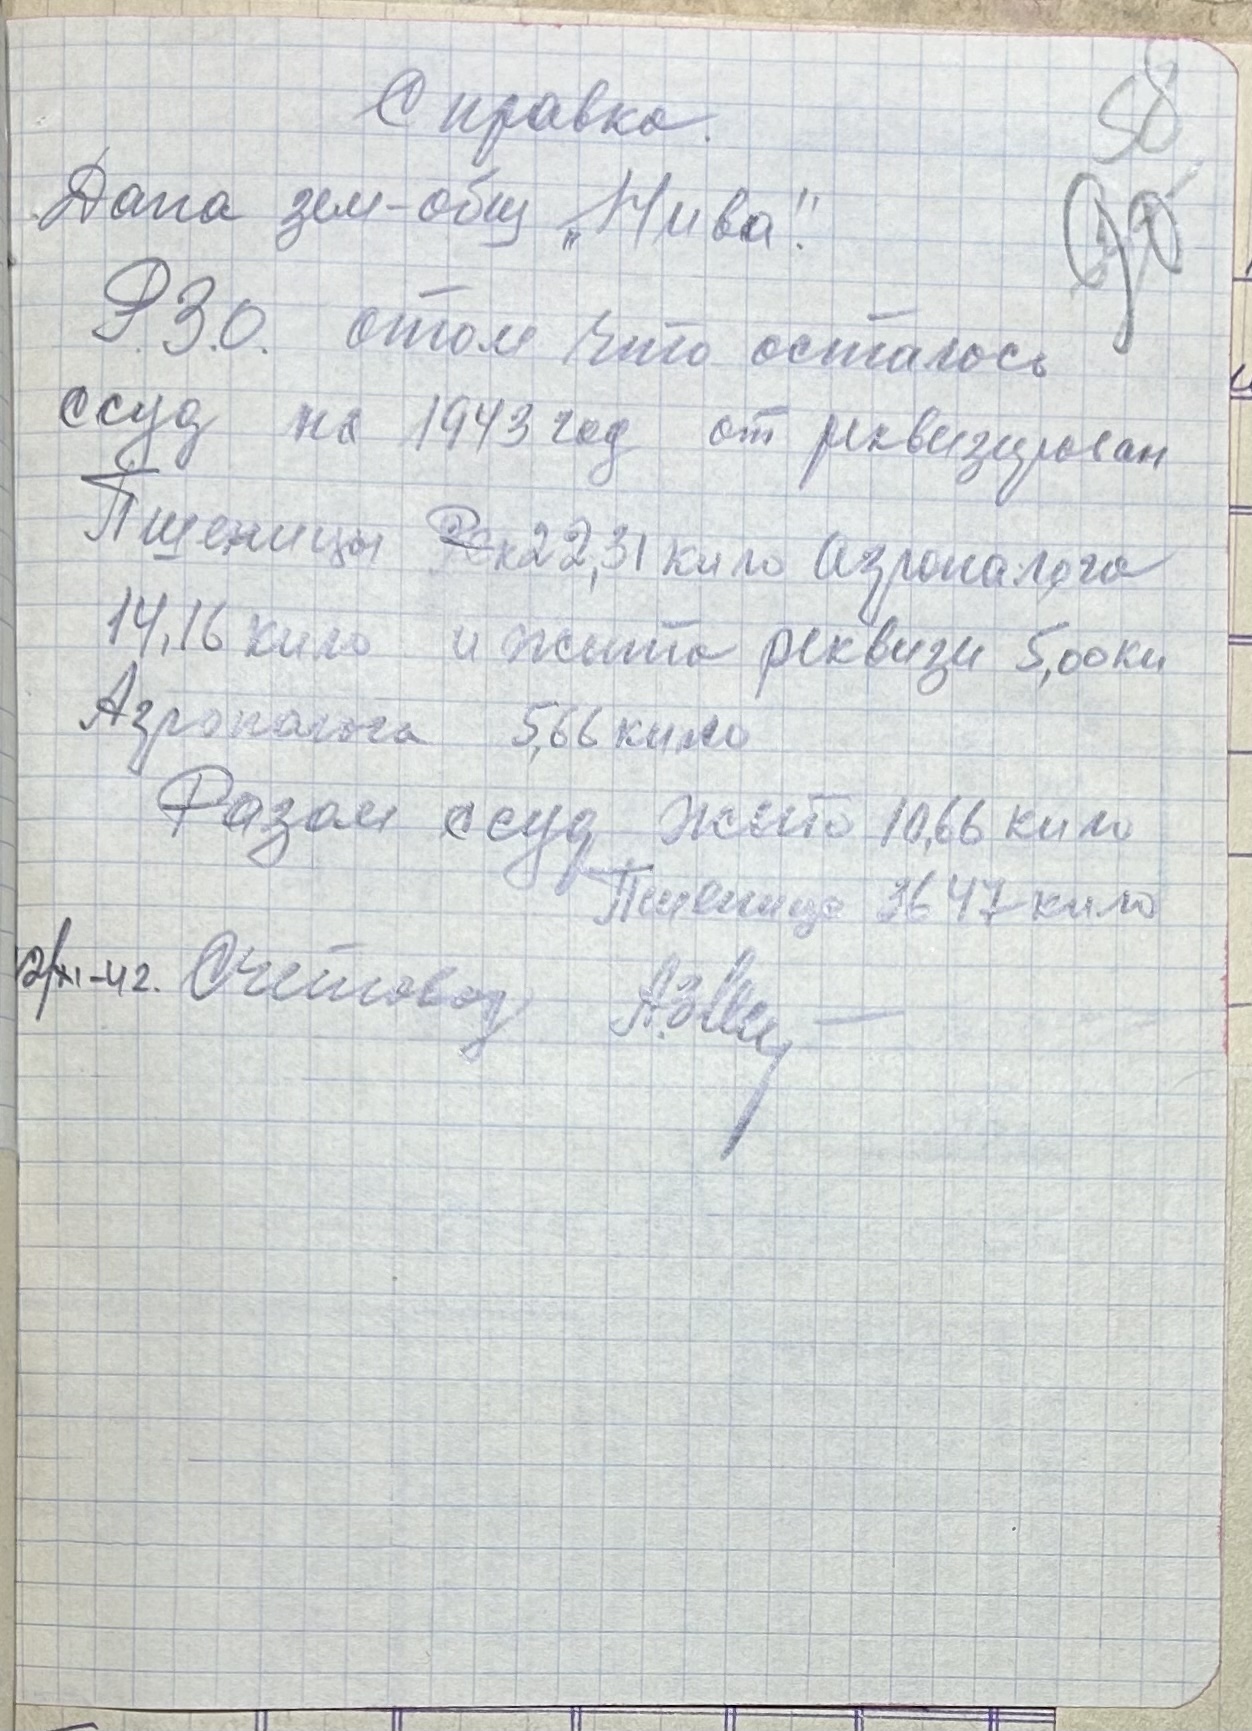 58
Справка.
Дана зем-общ „Нива"
Р.З.О. отом что осталось
ссуд на 1943 год от реквизирован
Пшеницы Рек 22,31 кило Агроналога
14,16 кило и жито реквизи 5,00 ки
Агроналога 5,66 кило
Разом ссуд жито 10,66 кило
Пшеница 36 47 кило
12/XI-42. Счетовод